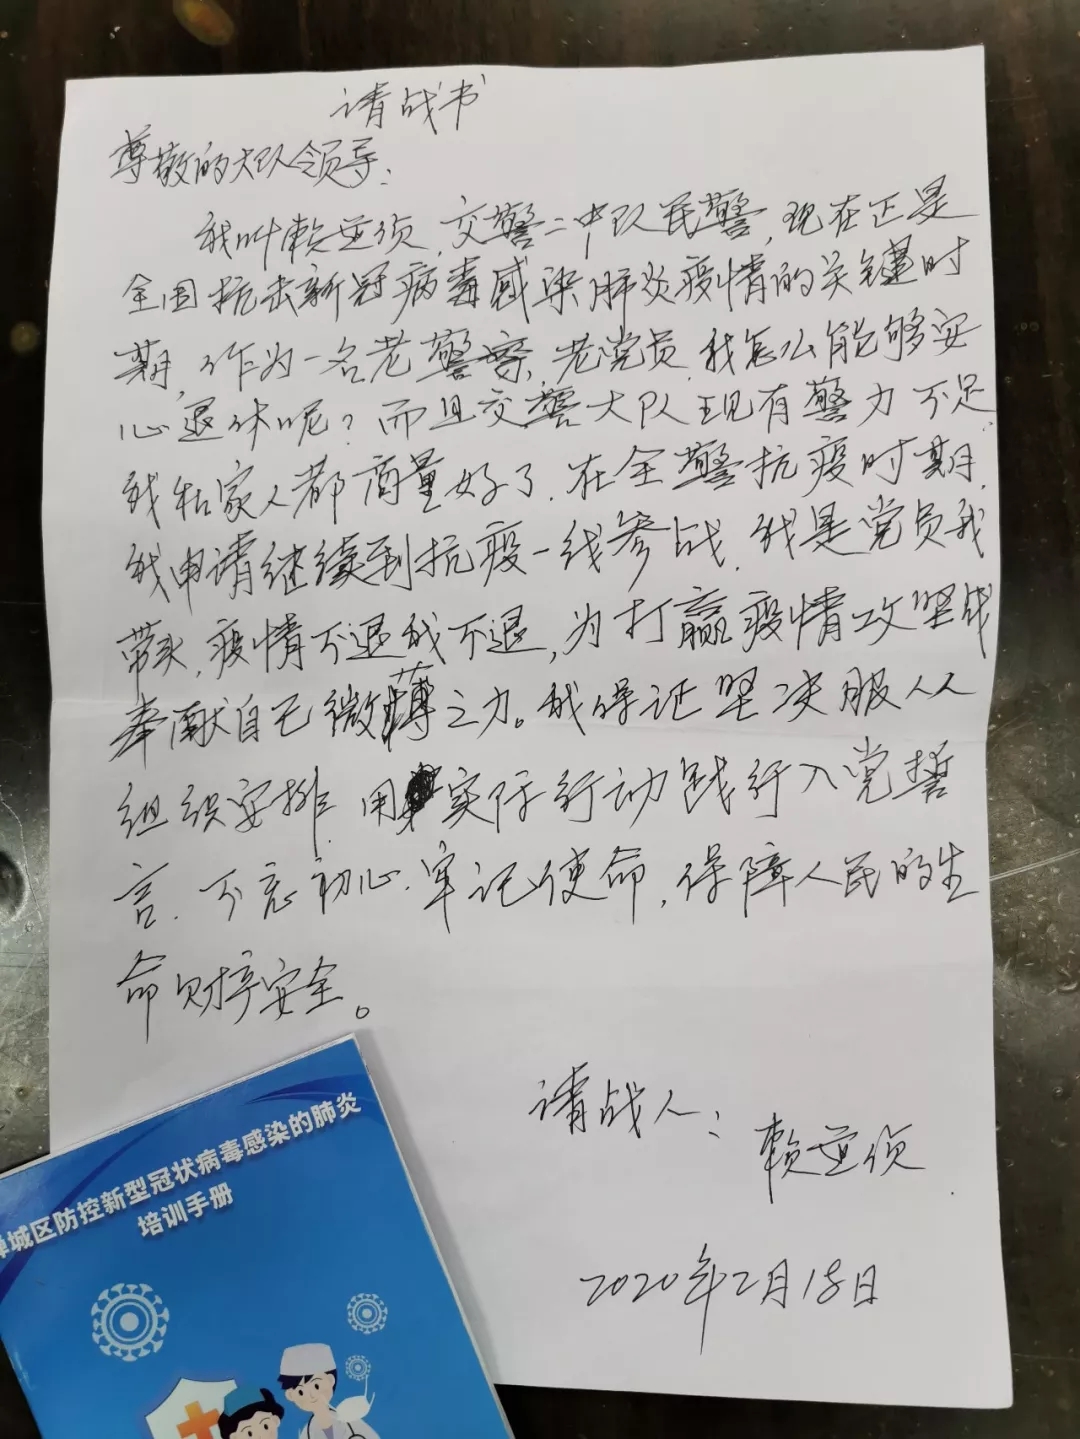 请战书
尊敬的大队领导:
我叫赖亚侦,交警二中队民警,现在正是
全国抗击新冠病毒感染肺炎疫情的关键时
期,作为一名老警察,老党员,我怎么能够安
心退休呢?而且交警大队现有警力不足,
我和家人都商量好了,在全警抗疫时期,
我申请继续到抗疫一线参战,我是党员我
带头,疫情不退我不退,为打赢疫情攻坚战
奉献自己微薄之力。我保证坚决服从
组织安排,用实际行动践行入党誓
言,不忘初心,牢记使命,保障人民的生
命财产安全。
请战人:
赖亚侦
2020年2月18日
禅城区防控新型冠状病毒感染的肺炎
培训手册